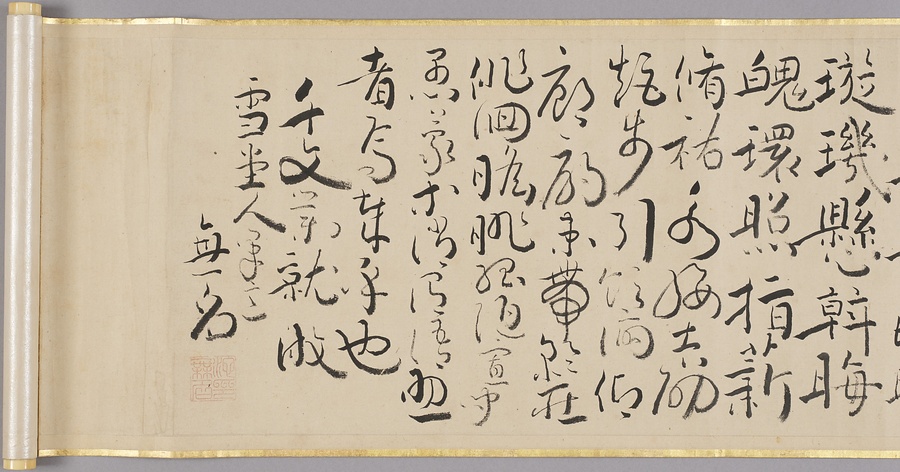 璇璣懸斡晦
魄環照指薪
脩祜永綏吉劭
矩步引領俯仰
廊廟束帶矜莊
徘徊瞻眺孤陋寡聞
愚蒙等誚謂語助
者焉哉乎也
千文 就成
雪堂人筆
無名